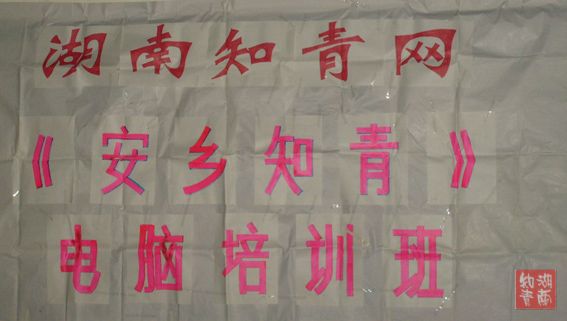 湖南知青网
《安乡知青》
电脑培训班
湖南
知青